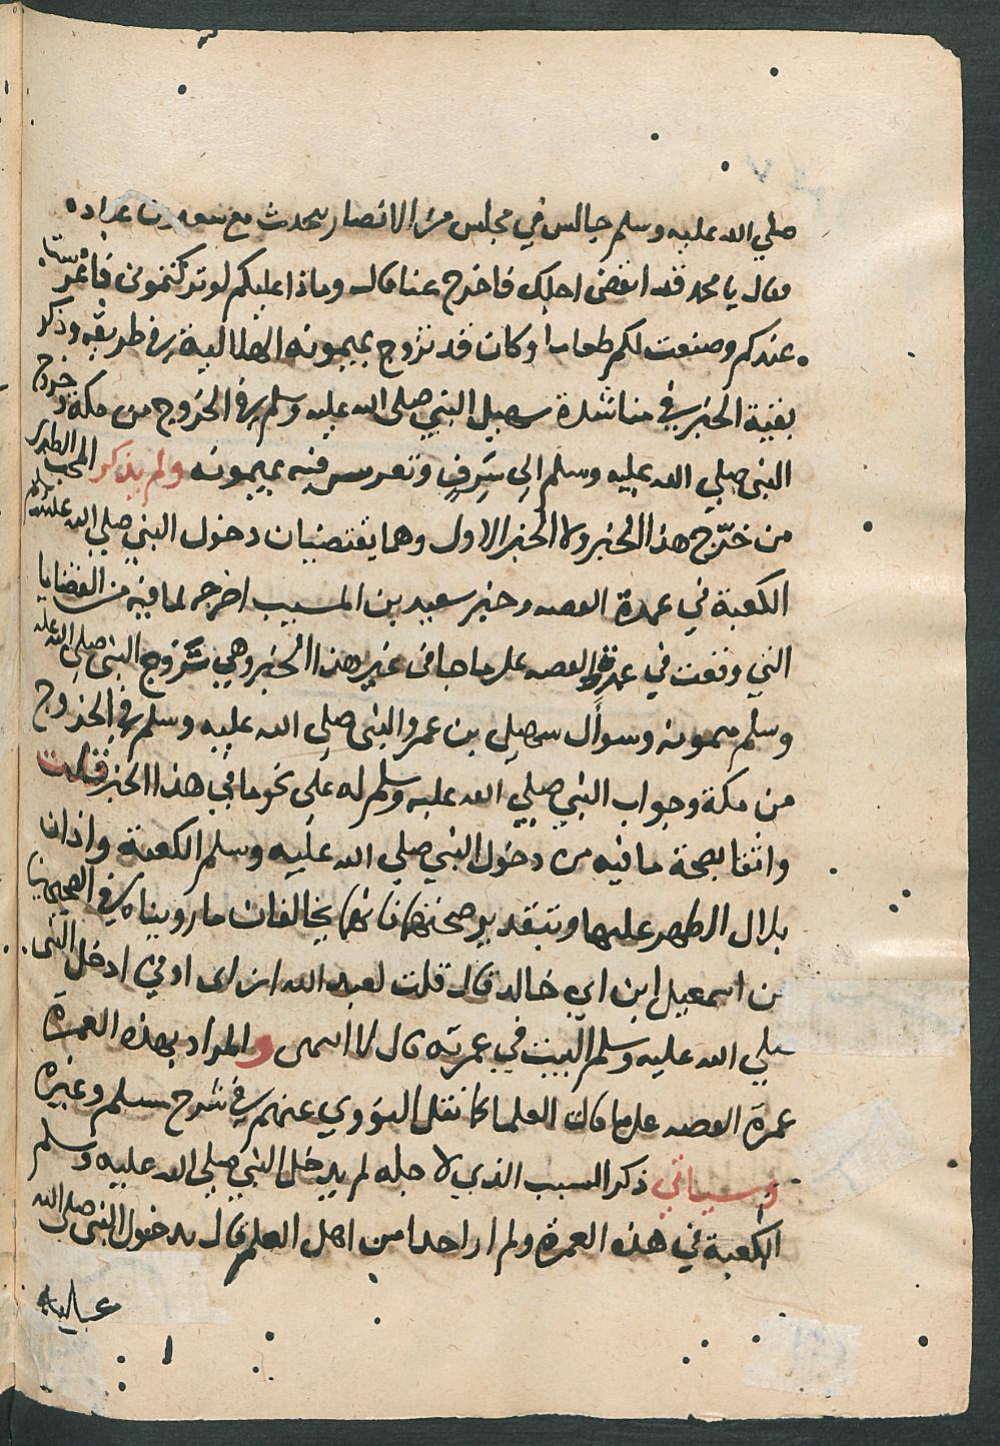 صلي الله عليه وسلم جالس في مجلس من الانصار يتحدث مع سعد بن عباده
فقال يا محمد قد انقضى اجلك فاخرج عنا قال وماذا عليكم لو تركتموني فاعرست
عندكم وصنعت لكم طعاما وكان قد تزوج بميمونه الهلالية في طريقه وذكر
بقية الخبر في مناشدة سهيل النبي صلى الله عليه وسلم في الخروج من مكة وخروج
النبي صلي الله عليه وسلم الى سَرِفٍ وتعرسه فيه بميمونه ولم يذكر المحب الطبري
من خرّج هذا الخبر ولا الخبر الاول وهما يقتضيان دخول النبي صلي الله عليه وسلم
الكعبة في عمرة القصه وخبر سعيد بن المسيب اخرجه لما فيه من القضايا
التي وقعت في عمرة القصه على ما جا في غير هذا الخبر وهي تزوج النبي صلى الله عليه
وسلم ميمونه وسوأل سهيل بن عمرو النبي صلى الله عليه وسلم في الخروج
من مكة وجواب النبي صلي الله عليه وسلم له على نحو ما في هذا الخبر قلت
واتفقا بصحة ما فيه من دخول النبي صلي الله عليه وسلم الكعبة واذان
بلال الظهر عليها وبتقدير صحتهما فانهما يخالفان ما رويناه في الصحيحين
عن اسمعيل ابن ابي خالد قال قلت لعبد الله ابن ابى اوفى ادخل النبى
صلي الله عليه وسلم البيت في عمرته قال لا انتهى والمراد بهذه العمرة
عمرة القصه على ما قال العلما كما نقل النووي عنهم في شرح مسلم وغيره
وسياتي ذكر السبب الذي لاجله لم يدخل النبي صلى الله عليه وسلم
الكعبة في هذه العمرة ولم ار احدا من اهل العلم قال بدخول النبى صلى الله
عليه